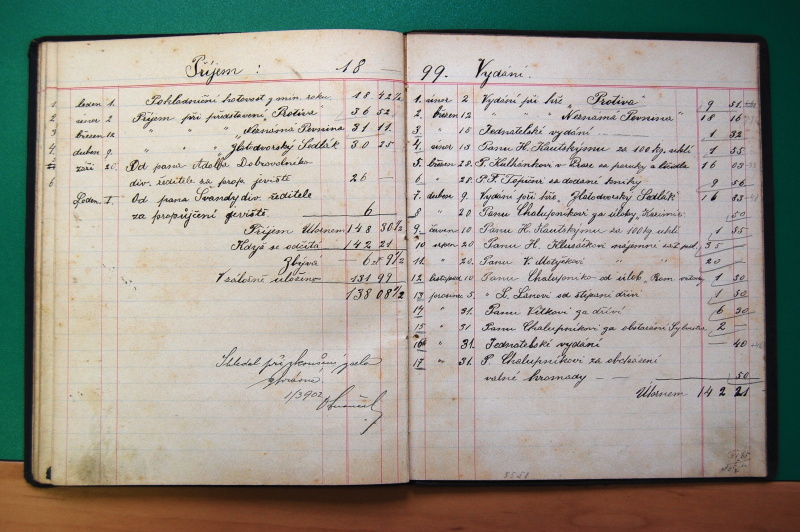 Příjem : 18
1. leden 1. Pokladniční hotovost z min. roku 18 42½
2. únor 2 Příjem při představení, Protiva 36 52
3. březen 12 " " " Neznámá Pevnina 31 11
4. duben 9. " " " Zlatodvorský Sedlák 30 25
5. září 20. Od pana Adolfa Dobrovolního
div. ředitele za prop. jeviště 26 —
6 Leden. I. Od pana Švandy div. ředitele
za propůjčení jeviště 6
Příjem Úhrnem 148 30½
Když se odčítá 142 21
Zbývá 6 zl 9½
V záložně uloženo 131 99
138 08½
Shledal při zkoušení zcela
správné
1/3 902
99. Vydání.
1. únor 2 Vydání při hře „Protiva" 9 51
2. březen 12 " " " „Neznámá Pevnina" 18 16
3 " 15 Jednatelské vydání — 1 32
4. únor 13 Panu H. Kautskýmu za 100 kg. uhlí 1 55
5. březen 28. P. Kalhánkovi v Praze za paruky a líčidla 16 03
6 " 28. P. F. Topičovi za dodané knihy 9 56
7. duben 9. Vydání při hře, Zlatodvorský Sedlák 16 53
8 " 20 Panu Chalupníkovi za úlohy, 50
9. červen 10 Panu H. Kautskýmu za 100 kg. uhlí 1 55
10 srpen 20 Panu H. nájemné zač pol. 35
11 " 20. Panu V. Motyčkovi " 20
12 listopad 10 Panu Chalupníkovi od úloh, 1 50
13 prosinec 5. " L. Lánovi od štípání dříví 1 50
14 " 31. Panu Vítkovi za dříví 6 30
15 " 31 Panu Chalupníkovi za obstarání Sylvestra 2 —
16 " 31. Jednatelské vydání — 40
17 " 31. P. Chalupníkovi za obeslání
valné hromady — 50
Úhrnem 142 21